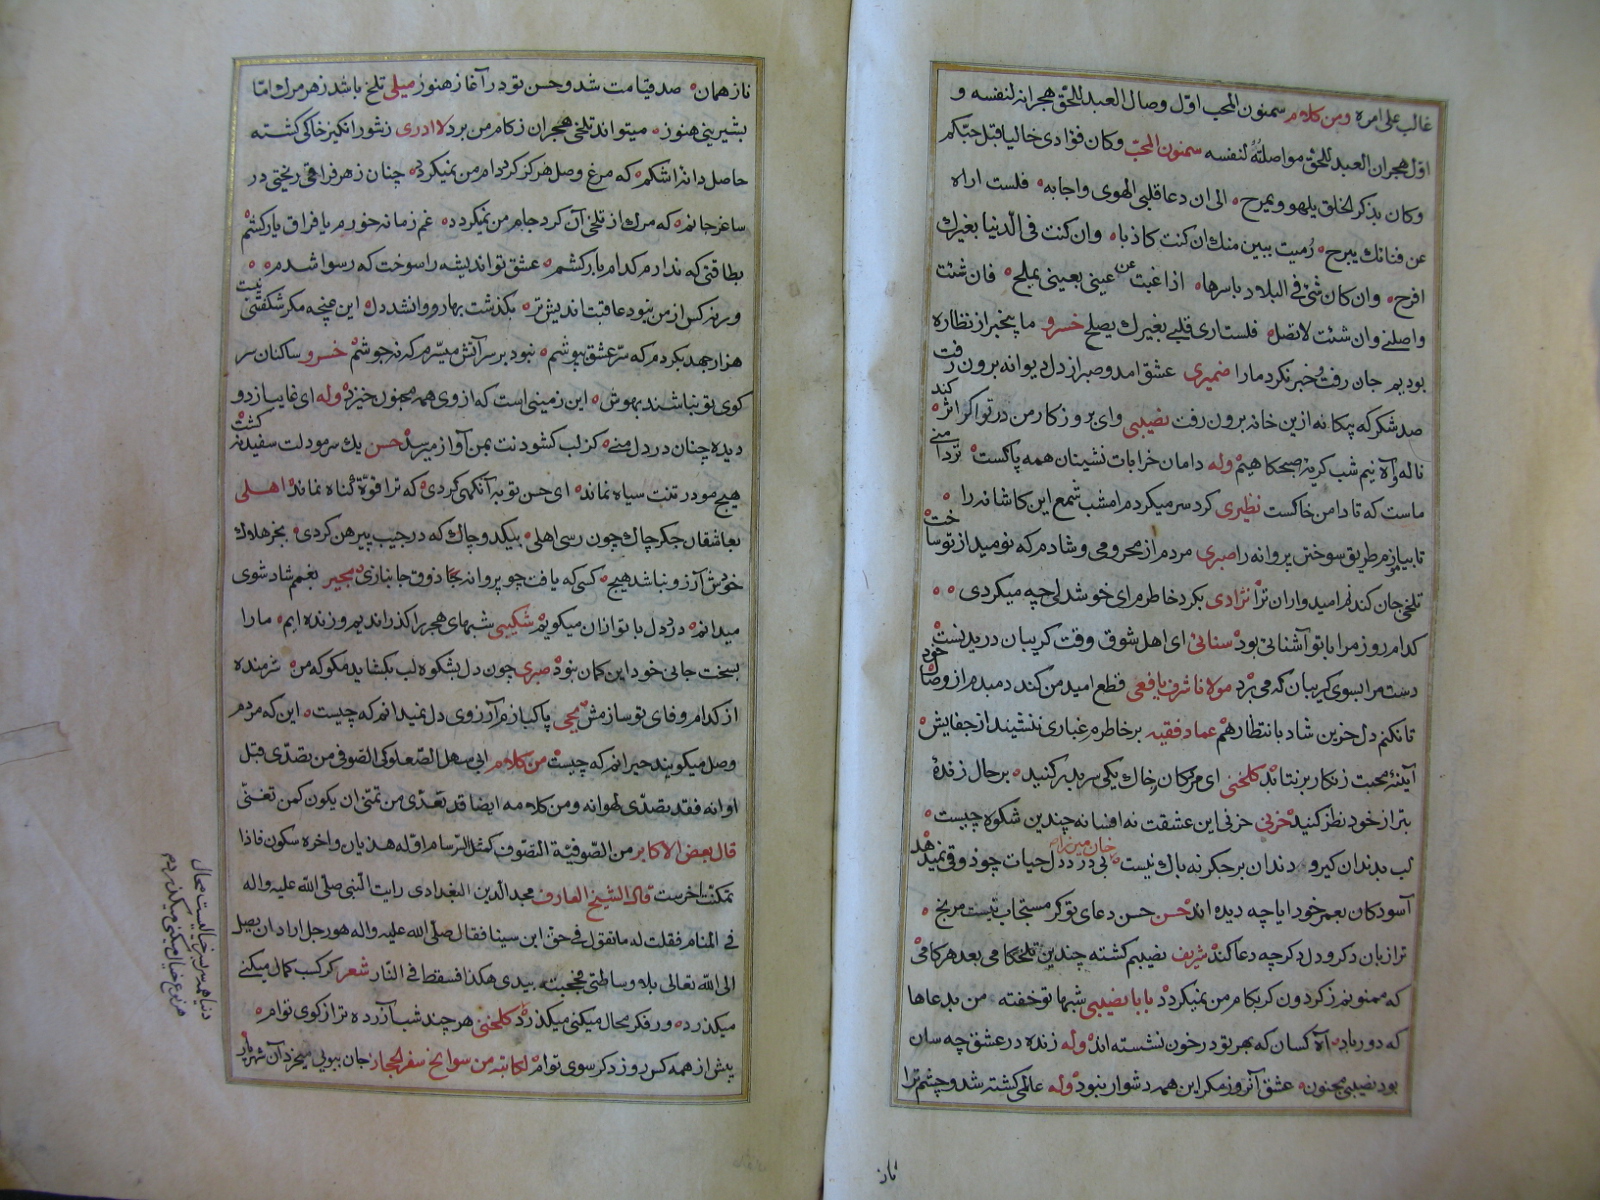 غالب علی امره ومن کلام سمنون المحب اوّل وصال العبد للحق هجرانه لنفسه و
اوّل هجران العبد للحق مواصلته لنفسه سمنون المحبّ وکان فؤادی خالیا قبل حبّکم
وکان بذکر الخلق یلهو ویمرح الی ان دعا قلبی الهوی واجابه فلست اراه
عن فنائك یبرح رُمیت ببین منك ان کنت کاذبا وان کنت فی الدّنیا بغیرك
افرح وان کان شئ فی البلاد باسرها اذا غبت عن عینی بعینی یملح فان شئت
واصلنی وان شئت لا تصل فلست اری قلبی بغیرك یصلح خسرو ما بیخبر از نظاره
بودیم جان رفت وخبر نکرد مارا ضمیری عشق امد وصبر از دل دیوانه برون رفت
صد شکر که بیکانه ازین خانه برون رفت نصیبی وای بر روزکار من در تو اکر اثر کند
ناله وآه نیم شب کریهٔ صبحکاهیم وله دامان خرابات نشینان همه پاکست تردامنی
ماست که تا دامن خاکست نظیری کرد سر میکردم امشب شمع این کاشانه را
تا بیاموزم طریق سوختن پروانه را صبری مردم از محرومی وشادم که نومید از تو ساخت
تلخی جان کندنم امیدواران ترا نژادی بکرد خاطرم ای خوشدلی چه میکردی
کدام روز مرا با تو آشنائی بود سنائی ای اهل شوق وقت کریبان دریدنست
دست مرا بسوی کریبان که می برد مولانا شرف یافعی قطع امید من کند دمبدم از وصال خود
تا نکنم دل حزین شاد بانتظار هم عماد فقیه بر خاطرم غباری ننشیند از جفایش
آیینهٔ محبت زنکار برنتابد کلخنی ای مردکان ز خاك یکی سر بدر کنید بر حال زندهٔ
بتر از خود نظر کنید حزنی حزنی این عشقت نه افسانه چندین شکوه چیست
لب بدندان کیر و دندان بر جکر نه باك نیست خان میرزا بی درد دل حیات چو ذوقی نمیدهد
آسودکان بعمر خود ایا چه دیده اند حسن حسن دعای تو کر مستجاب نیست مرنج
ترا زبان دکر و دل دکر چه دعا کند شریف نصیبم کشته چندین تلخکامی بعد هر کامی
که ممنونم ز کردون کر بکام من نمیکردد بابا نصیبی شبها تو خفته من بدعاها
که دور باد آه کسان که بهر تو در خون نشسته اند وله زنده در عشق چه سان
بود نصیبی مجنون عشق آنروز مکر این همه دشوار نبود وله عالمی کشته شد وچشم ترا
ناز
ناز همان صد قیامت شد وحسن تو در آغاز هنوز میلی تلخ باشد زهر مرك امّا
بشیرینی هنوز میتواند تلخی هجران ز کام من برد لاادری ز شور انکیز خاکی کشته
حاصل دانهٔ اشکم که مرغ وصل هرکز کرد دام من نمیکردد چنان زهر فراقی ریختی در
ساغر جانم که مرك از تلخی آن کرد جام من نمیکردد غم زمانه خورم یا فراق یار کشم
بطاقتی که ندارم کدام بار کشم عشق تو اندیشه را سوخت که رسوا شدم
ورنه کس از من نبود عاقبت اندیش تر بکذشت بهار و وانشد دل این غنچه مکر شکفتنی نیست
هزار جهد بکردم که سرّ عشق بپوشم نبود بر سر آتش میسّرم که نجوشم خسرو ساکنان سر
کوی تو نباشند بهوش این زمینی است که از وی همه مجنون خیزد وله ای غایب از دو
دیده چنان در دل منی کز لب کشودنت بمن آواز میرسد حسن یك سر مو دلت سفید نکشت
هیچ مو در تنت سیاه نماند ای حسن توبه آنکهی کردی که ترا قوّة کناه نماند اهلی
بعاشقان جکر چاك چون رسی اهلی بیکدو چاك که در جیب پیرهن کردی بجز هلاك
خودش آرزو نباشد هیچ کسی که یافت چو پروانه ذوق جانبازی مجیر بغمم شاد شوی
میدانم درد دل با تو ازان میکویم شکیبی شبهای هجر را کذراندیم وزنده ایم مارا
بسخت جانی خود این کمان نبود صبری چون دل بشکوه لب بکشاید مکو که من شرمنده
از کدام وفای تو سازمش یحیی پاکبازم آرزوی دل نمیدانم که چیست این که مردم
وصل میکویند حیرانم که چیست من کلام ابی سهل الصّعلوکی الصّوفی من تصدّی قبل
اوانه فقد تصدّی لهوانه ومن کلامه ایضا قد تعدّی من تمنّی ان یکون کمن تعنّی
قال بعض الاکابر من الصّوفیّة التصّوف کمثل البرسام اوّله هذیان واخره سکون فاذا
تمکنت اخرست قال الشیخ العارف مجد الدین البغدادی رایت النّبی صلّی اللّه علیه واله
فی المنام فقلت له ما تقول فی حق ابن سینا فقال صلّی اللّه علیه واله هو رجل اراد ان یصل
الی اللّه تعالی بلا وساطتی فحجبته بیدی هکذا فسقط فی النّار شعر کر کسب کمال میکنی
میکذرد ور فکر محال میکنی میکذرد
دنیا همه سر بسر خیالست محال
هر نوع خیال میکنی میکذرد
کلخنی هر چند شب آزرده تر از کوی توام
پیش از همه کس روز دکر سوی توام لکاتبه من سوانح سفر الحجاز جان ببویی میخرد آن شهریار